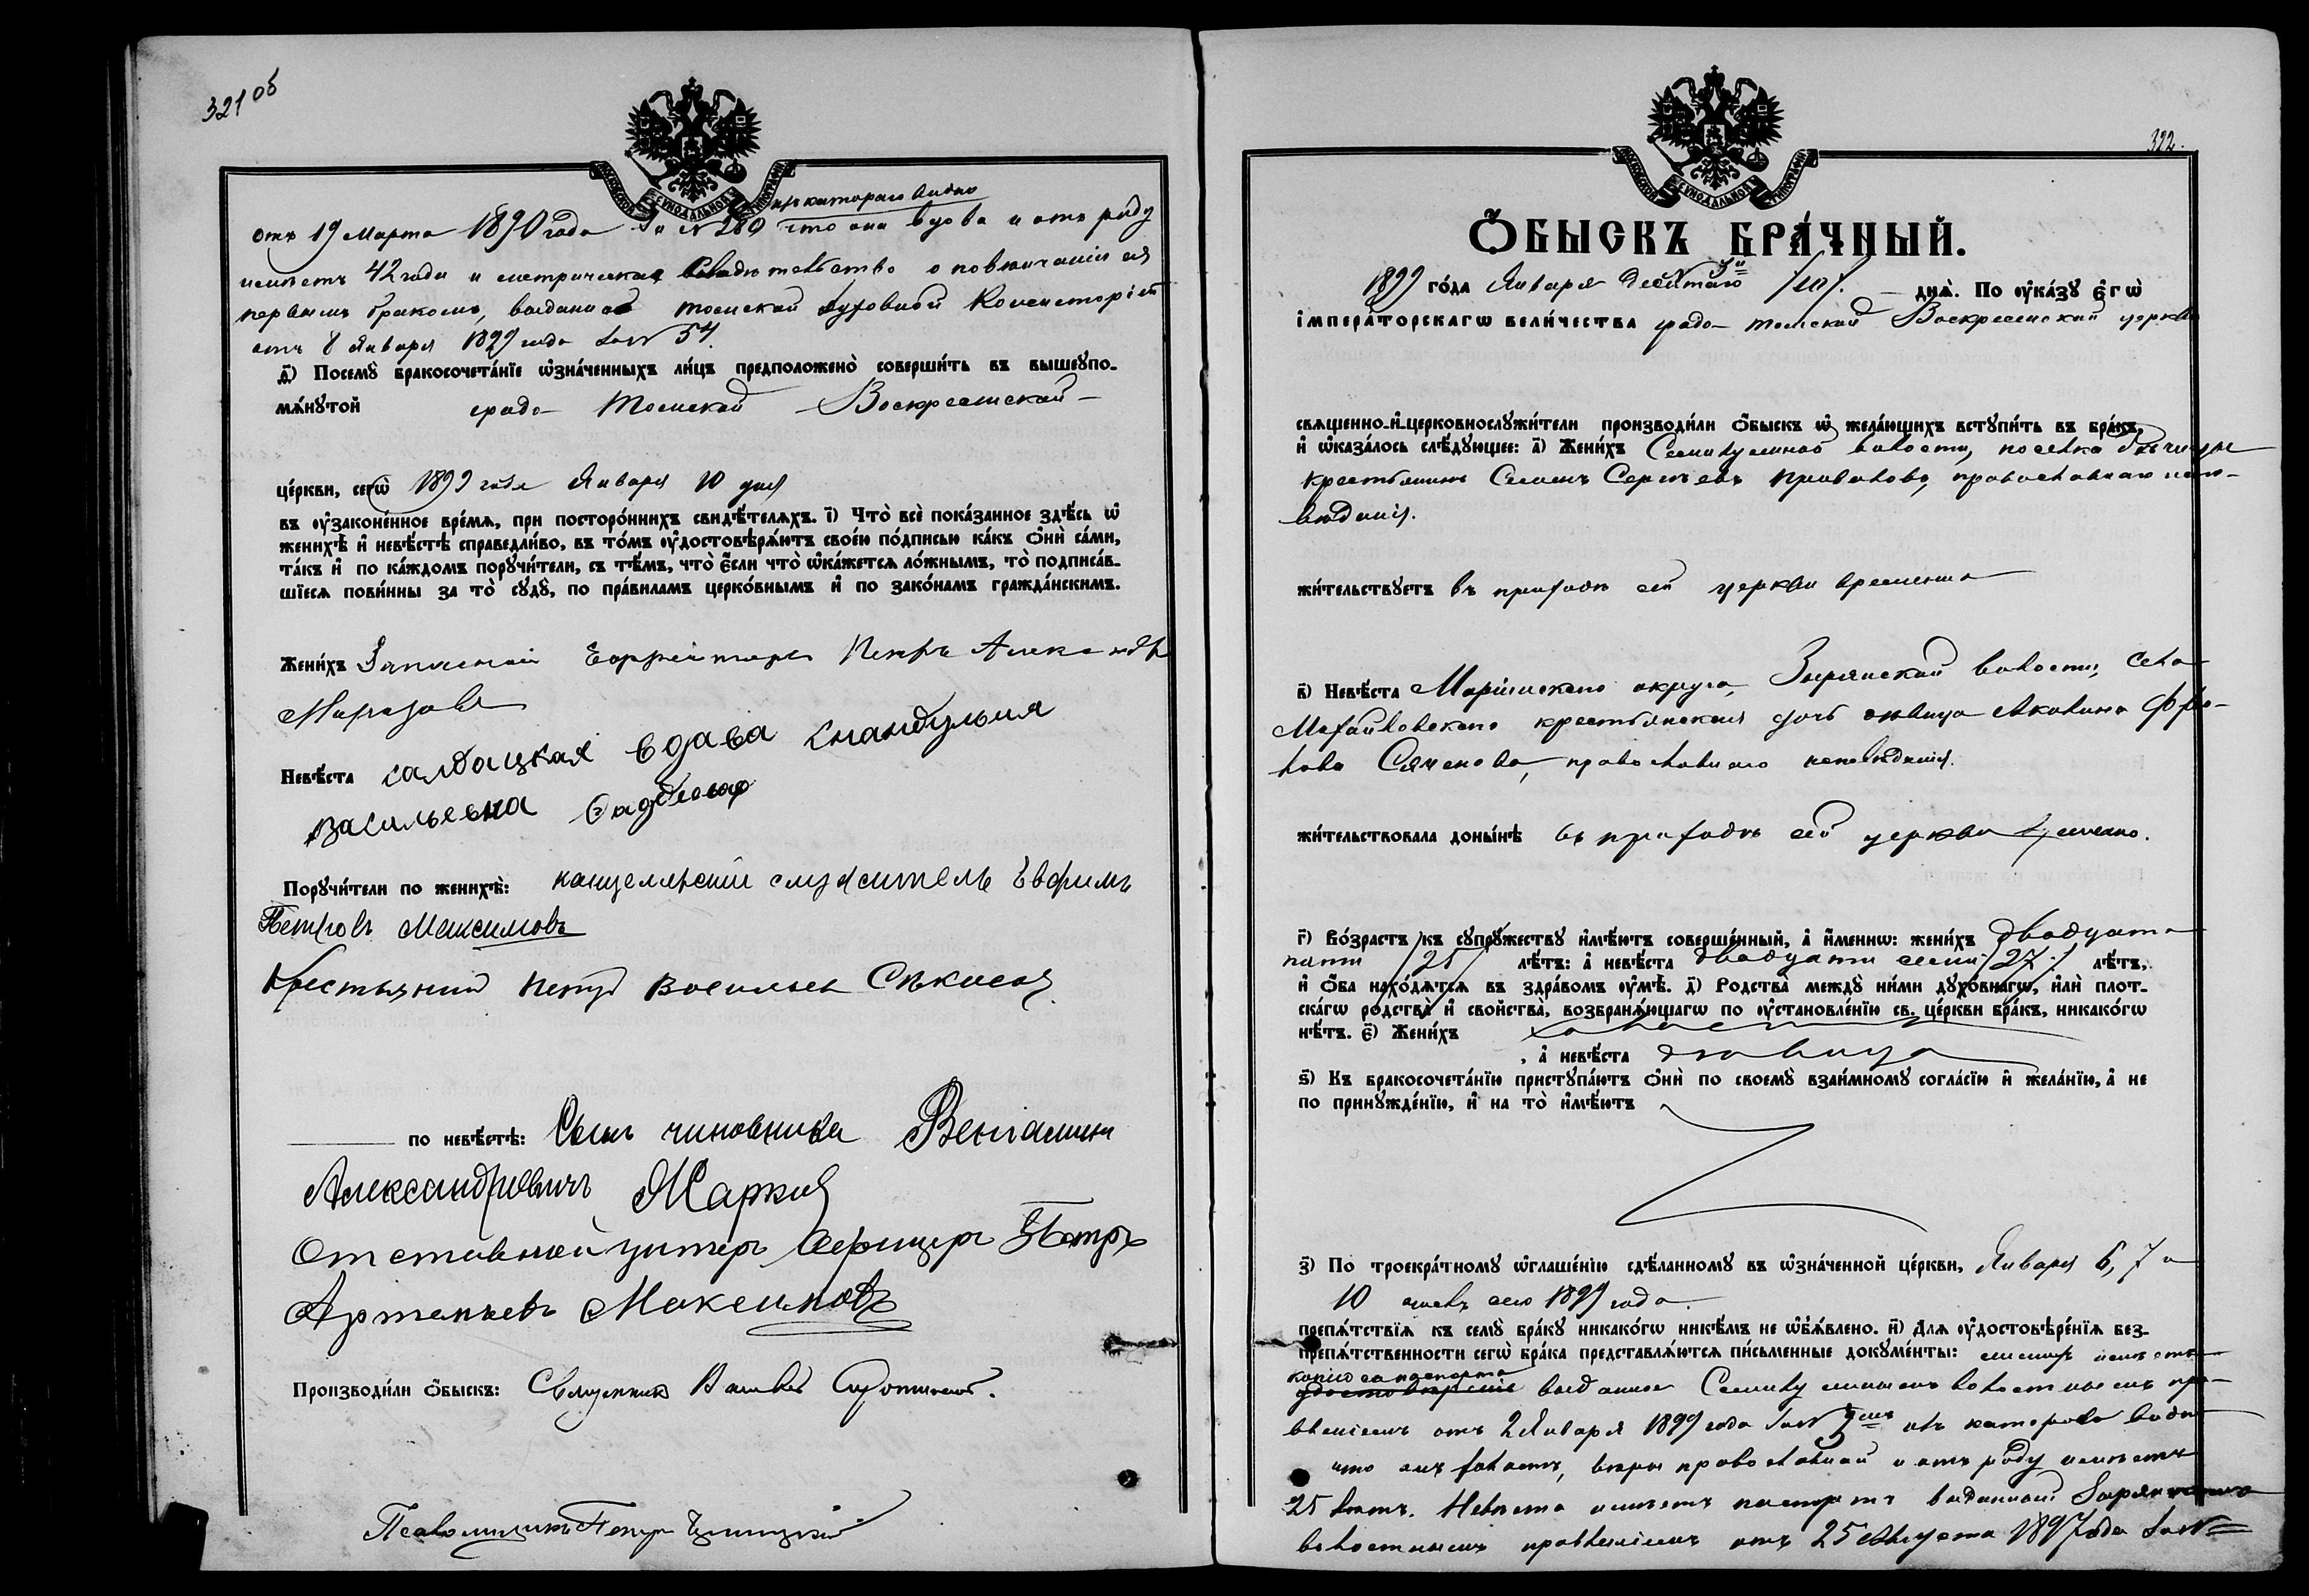 321 об
изъ котораго видно
отъ 19 Марта 1890 года за № 280 что она вдова и отъ роду
имѣетъ 42 года и метрическое свидѣтельство о повѣнчаніи ея
первымъ бракомъ, выданное Томской Духовной Консисторіей
отъ 8 Января 1899 года за № 54.
д҃) Посемꙋ̀ бракосочета́нїе ѡ҆зна́ченныхъ ли́цъ предположено̀ соверши́ть въ вышеꙋпо-
мѧ́нꙋтой градо-Томской Воскресенской
це́ркви, сегѡ̀ 1899 года Января 10 дня
въ ᲂу҆законе́нное вре́мѧ, при посторо́ннихъ свидѣ́телѧхъ. і҃) Что̀ всѐ пока́занное здѣ́сь ѡ҆
женихѣ̀ и҆ невѣ́стѣ справедли́во, въ то́мъ ᲂу҆достовѣрѧ́ютъ свое́ю по́дписью ка́къ ѻ҆нѝ са́ми,
та́къ и҆ по ка́ждомъ порꙋчи́тели, съ тѣ́мъ, что̀ є҆́сли что̀ ѡ҆ка́жетсѧ ло́жнымъ, то̀ подписа́в-
шїесѧ пови́нны за то̀ сꙋдꙋ̀, по пра́виламъ церко́внымъ и҆ по зако́намъ гражда́нскимъ.
Жени́хъ Запасной Ефрейторъ Петръ Александр
Невѣ́ста салдацкая вдава
васильевна
Порꙋчи́тели по женихѣ̀: канцелярскій служитель Ефимъ
Петровъ Максимовъ
Крестьянинъ Петръ Васильев
по невѣ́стѣ: Сынъ чиновника Веніаминъ
Александровичъ Марков
Отставной унтеръ Офицеръ Петръ
Артемьевъ Максимовъ
Производи́ли ѻ҆́быскъ: Священникъ
Псаломщикъ Петръ
322.
МОСКОВСКОЙ СѴНОДАЛЬНОЙ ТИПОГРАФІИ
Ѻ҆́БЫСКЪ БРА́ЧНЫЙ.
1899 го́да Января десятаго /10/. днѧ̀. По ᲂу҆ка́зꙋ є҆гѡ̀
і҆мпера́торскагѡ вели́чества градо-Томской Воскресенской церкви
свѧщенно-и҆-церковнослꙋжи́тели производи́ли ѻ҆́быскъ ѡ҆ жела́ющихъ встꙋпи́ть въ бра́къ,
и҆ ѡ҆каза́лось слѣ́дꙋющее: а҃) Жени́хъ Семилужной волости, поселка
крестьянинъ Семенъ Сергѣевъ Приваловъ, православнаго испо-
вѣданія.
жи́тельствꙋетъ въ приходѣ сей церкви временно
в҃) Невѣ́ста Маріинскаго округа, Зырянской волости, села
Михайловскаго крестьянская дочь дѣвица Акилина Фро-
лова Семенова, православнаго исповѣданія.
жи́тельствовала доны́нѣ въ приходѣ сей церкви временно.
г҃) Во́зрастъ къ сꙋпрꙋ́жествꙋ и҆мѣ́ютъ соверше́нный, а҆ и҆́меннѡ: жени́хъ двадцати
пяти /25/ лѣ́тъ: а҆ невѣ́ста двадцати семи /27/. лѣ́тъ,
и҆ ѻ҆́ба нахо́дѧтсѧ въ здра́вомъ ᲂу҆мѣ̀. д҃) Родства̀ междꙋ̀ ни́ми дꙋхо́внагѡ, и҆лѝ плот-
ска́гѡ родства̀ и҆ сво́йства, возбранѧ́ющагѡ по ᲂу҆становле́нїю св. це́ркви бра́къ, никако́гѡ
нѣ́тъ. є҃) Жени́хъ холостъ
, а҆ невѣ́ста дѣвица
ѕ҃) Къ бракосочета́нїю пристꙋпа́ютъ ѻ҆нѝ по своемꙋ̀ взаи́мномꙋ согла́сїю и҆ жела́нїю, а҆ не
по принꙋжде́нїю, и҆ на то̀ и҆мѣ́ютъ
з҃) По троекра́тномꙋ ѡ҆глаше́нїю сдѣ́ланномꙋ въ ѡ҆зна́ченной це́ркви, Января 6, 7 и
10 чиселъ сего 1899 года.
препѧ́тствїѧ къ семꙋ̀ бра́кꙋ никако́гѡ никѣ́мъ не ѡ҆б̾ѧ́влено. и҃) Длѧ ᲂу҆достовѣре́нїѧ без-
препѧ́тственности сегѡ̀ бра́ка представлѧ́ютсѧ пи́сьменные докꙋме́нты: женихъ имѣетъ
копію съ паспорта
удостовѣреніе выданное Семилужнымъ волостнымъ пра-
вленіемъ отъ 2 Января 1899 года за № изъ котораго видно
что онъ холостъ, вѣры православной и отъ роду имѣетъ
25 лѣтъ. Невѣста имѣетъ паспортъ выданный Зырянскимъ
волостнымъ правленіемъ отъ 25 Августа 1897 года за №